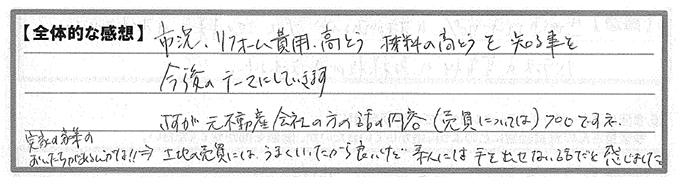 【全体的な感想】 市況、リフォーム費用、高とう 材料の高とうを 知る事を
今後のテーマにしていきます
さすが元不動産会社の方の話の内容(売買については)プロですネ。
実家の
⇒ 土地の売買には、うまくいったから良いけど 素人には 手を出せない話だと 感じました